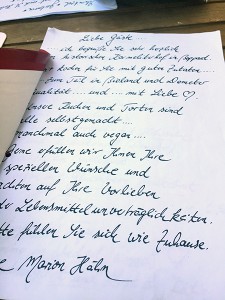 Liebe Gäste....
ich begrüße Sie sehr herzlich
historischen
kochen für Sie mit guten Zutaten....
zum Teil in Bioland und Demeter
qualität.... und .... mit Liebe ♡.
Kuchen und Torten sind
alle selbstgemacht....
manchmal auch vegan....
erfüllen wir Ihnen Ihre
speziellen Wünsche und
achten auf Ihre Vorlieben
Lebensmittelunverträglichkeiten.
fühlen Sie sich wie Zuhause.
Marion Hahn